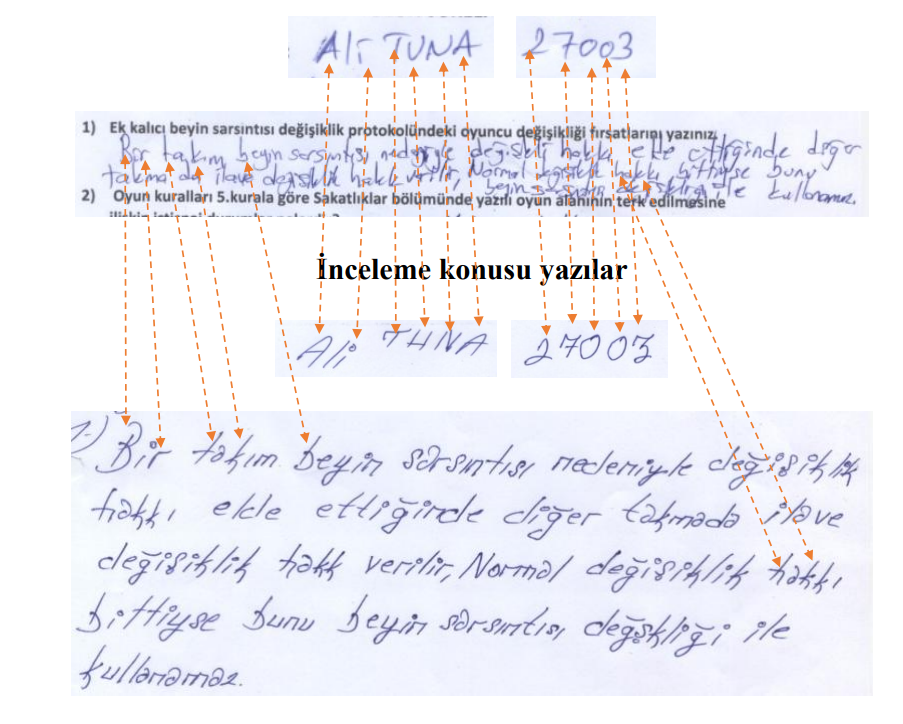 Ali TUNA 27003
1) Ek kalıcı beyin sarsıntısı değişiklik protokolündeki oyuncu değişikliği fırsatlarını yazınız.
Bir takım beyin sarsıntısı nedeniyle değişikli hakkı elde ettiğinde diğer
takıma da ilave değişiklik hakkı verilir, Normal değişiklik hakkı bittiyse bunu
beyin sarsıntısı değişkliği ile kullanamaz.
2) Oyun kuralları 5.kurala göre Sakatlıklar bölümünde yazılı oyun alanının terk edilmesine
İnceleme konusu yazılar
Ali TUNA 27003
1-) Bir takım beyin sarsıntısı nedeniyle değişiklik
hakkı elde ettiğinde diğer takmada ilave
değişiklik hakk verilir, Normal değişiklik hakkı
bittiyse bunu beyin sarsıntısı değşkliği ile
kullanamaz.